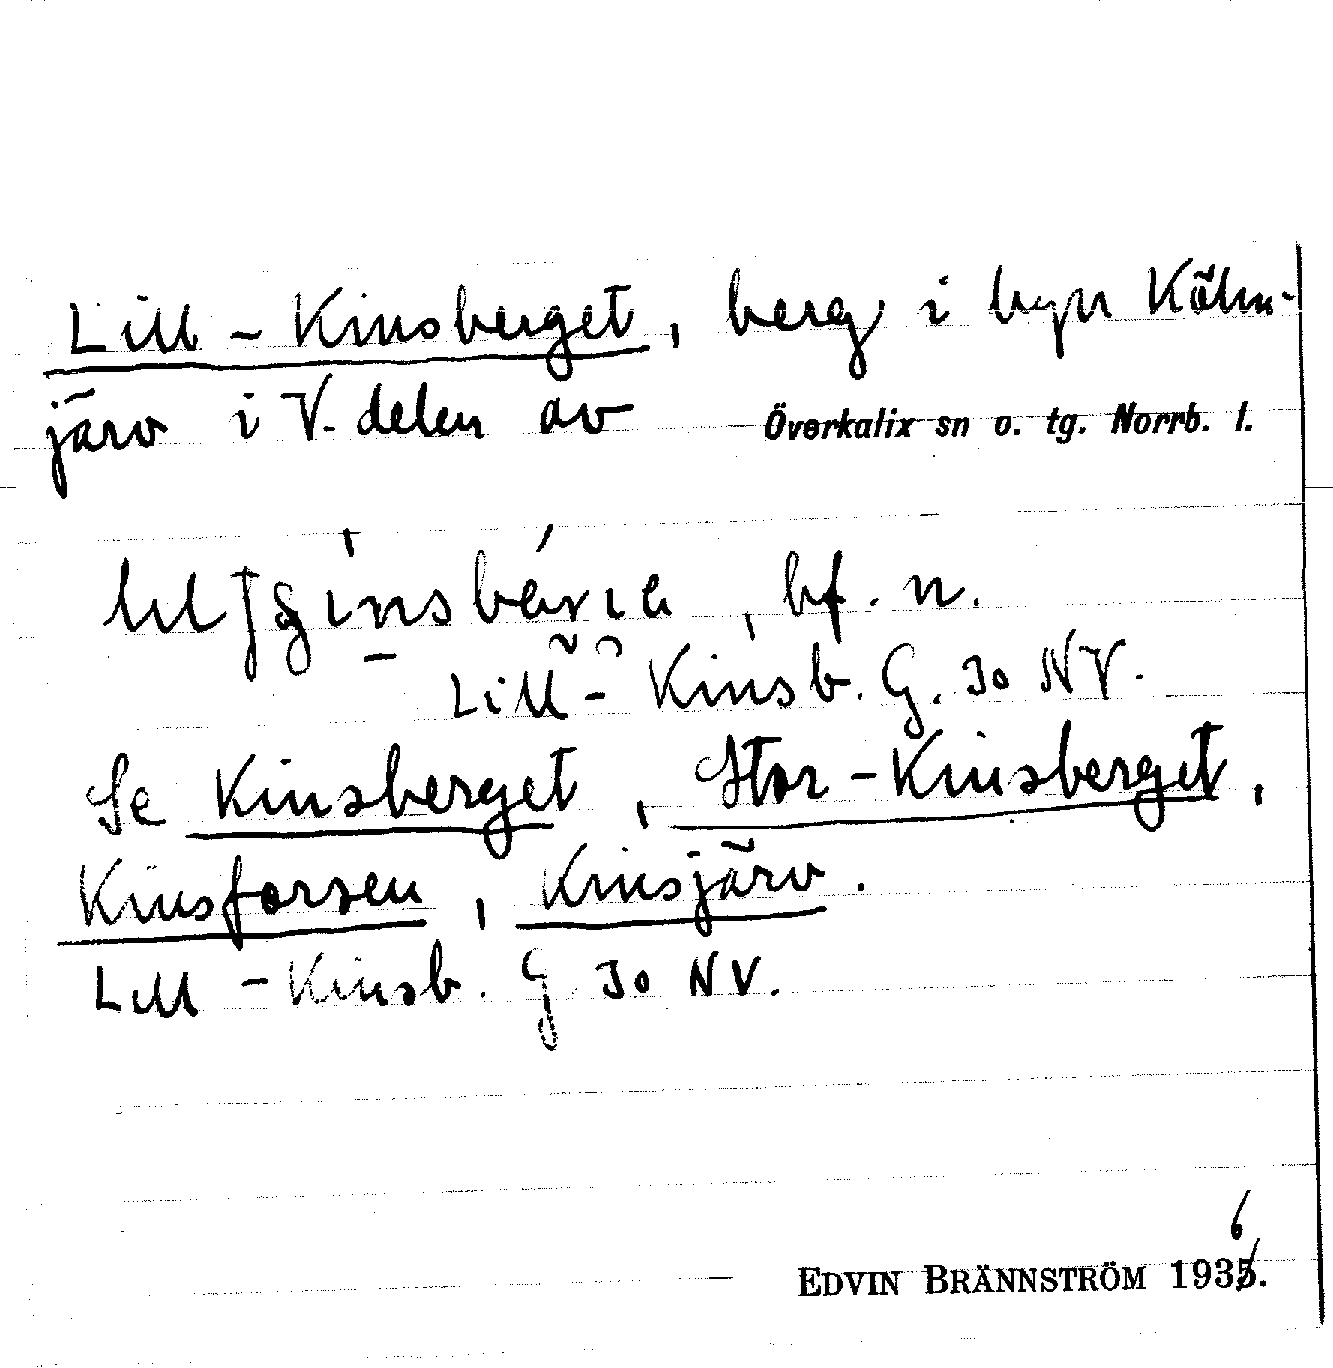 Lill-Kinsberget, berg i byn Kölm-
järv i V. delen av Överkalix sn o. tg. Norrb. l.
, bf. n.
Lill-Kinsb. G. 30 NV.
Se Kinsberget, Stor-Kinsberget,
Kinsforsen, Kinsjärv.
Lill-Kinsb. G 30 NV.
6
EDVIN BRÄNNSTRÖM 1935.